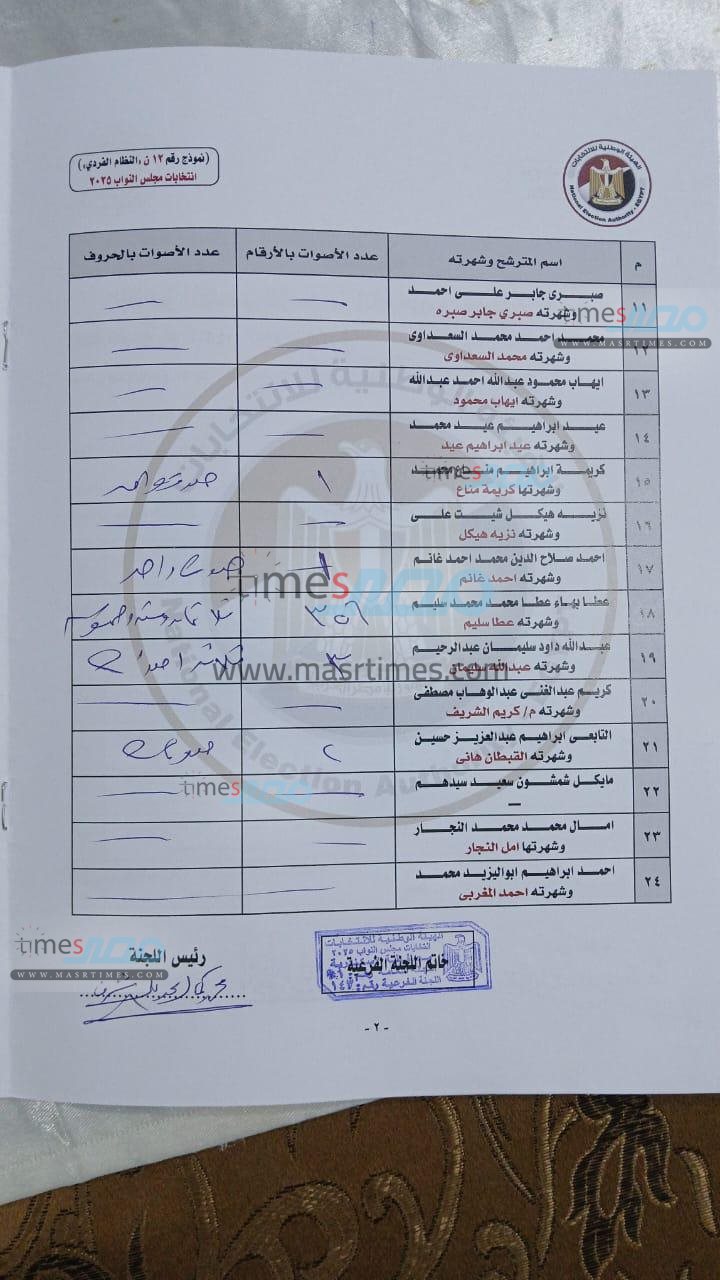 (نموذج رقم ١٢ ن «النظام الفردي»)
انتخابات مجلس النواب ٢٠٢٥
الهيئة الوطنية للانتخابات
National Election Authority - EGYPT
م اسم المترشح وشهرته عدد الأصوات بالأرقام عدد الأصوات بالحروف
١١ صبرى جابر على احمد
وشهرته صبري جابر صبره
١٢ محمد احمد محمد السعداوى
وشهرته محمد السعداوى
١٣ ايهاب محمود عبدالله احمد عبدالله
وشهرته ايهاب محمود
١٤ عيد ابراهيم عيد محمد
وشهرته عيد ابراهيم عيد
١٥ كريمة ابراهيم مناع محمد ١ صوت واحد
وشهرتها كريمة مناع
١٦ نزيه هيكل شيت على
وشهرته نزيه هيكل
١٧ احمد صلاح الدين محمد احمد غانم ١ صوت واحد
وشهرته احمد غانم
١٨ عطا بهاء عطا محمد محمد سليم ٣٥٦ ثلاثمائة وستة وخمسون
وشهرته عطا سليم
١٩ عبدالله داود سليمان عبدالرحيم ٣ ثلاثة اصوات
وشهرته عبدالله سليمان
٢٠ كريم عبدالغنى عبدالوهاب مصطفى
وشهرته م/ كريم الشريف
٢١ التابعى ابراهيم عبدالعزيز حسين ٢ صوتان
وشهرته القبطان هانى
٢٢ مايكل شمشون سعيد سيدهم
—
٢٣ امال محمد محمد النجار
وشهرتها امل النجار
٢٤ احمد ابراهيم ابواليزيد محمد
وشهرته احمد المغربى
times مصر
WWW.MASRTIMES.COM
times مصر
times مصر
www.masrtimes.com
times مصر
times مصر
WWW.MASRTIMES.COM
National Election Authority
الهيئة الوطنية للانتخابات
انتخابات مجلس النواب ٢٠٢٥
خاتم اللجنة الفرعية
اللجنة الفرعية رقم: ١٤٧
رئيس اللجنة
- ٢ -